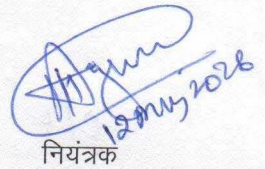 12 May 2026
नियंत्रक